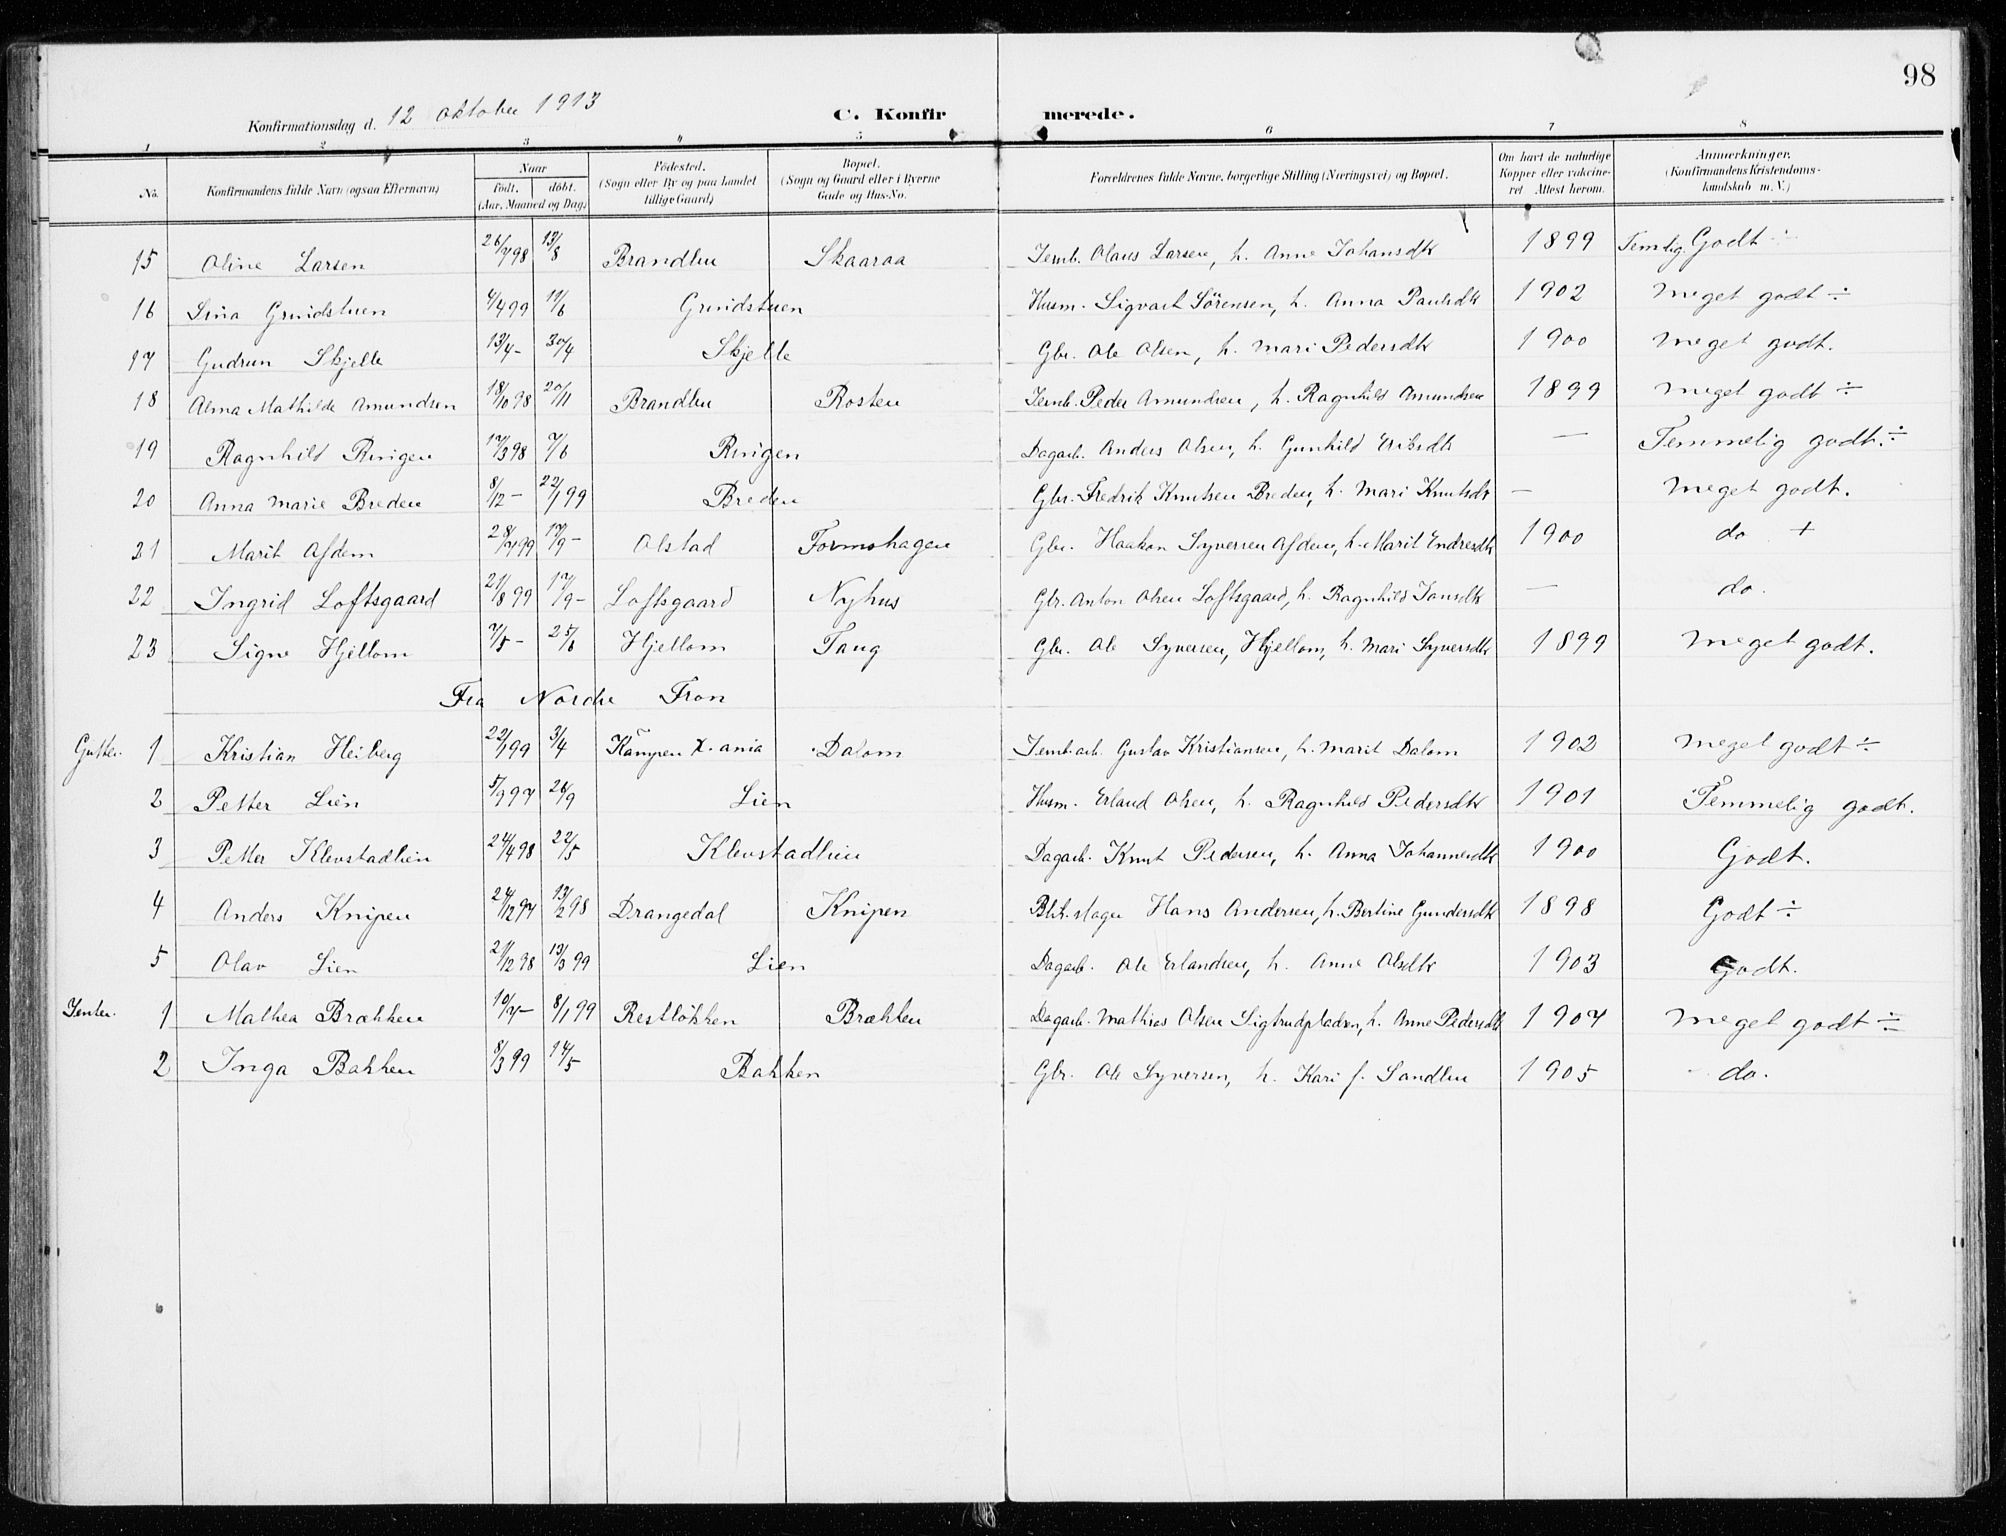 98
Konfirmationsdag d. 12 oktober 1913 C. Konfir merede.
1 2 3 4 5 6 7 8
No. Konfirmandens fulde Navn (ogsaa Efternavn) Naar født. døbt. (Aar, Maaned og Dag) Fødested. (Sogn eller By og paa Landet tillige Gaard) Bopæl. (Sogn og Gaard eller i Byerne Gade og Hus-No. Forældrenes fulde Navne, borgerlige Stilling (Næringsvei) og Bopæl. Om havt de naturlige Kopper eller vakcineret. Attest herom. Anmerkninger. (Konfirmandens Kristendomskundskab m. V.)
15 Oline Larsen 26/7 98 13/8 Brandlien Skaaraa Jernb. Olaus Larsen, h. Anne Johansdtr 1899 Temlig. Godt ÷
16 Lina Grindstuen 4/4 99 11/6 Grindstuen Husm. Sigvart Sørensen, h. Anna Paulsdtr 1902 Meget godt ÷
17 Gudrun Skjelle 13/4 - 30/4 Skjelle Gbr. Ole Olsen, h. Mari Pedersdtr 1900 Meget godt.
18 Alma Mathilde Amundsen 18/10 98 20/11 Brandlien Rosten Jernb. Peder Amundsen, h. Ragnhild Amundsen 1899 Meget godt ÷
19 Ragnhild Ringen 17/3 98 7/6 Ringen Dagarb. Anders Olsen, h. Gunhild Eriksdtr — Temmelig godt. ÷
20 Anna Marie Breden 8/12 - 22/1 99 Breden Gbr. Fredrik Knutsen Breden, h. Mari Knutsdtr — Meget godt.
21 Marit Afdem 28/7 99 17/9 - Olstad Formohagen Gbr. Haakon Syversen Afdem, h. Marit Endresdtr 1900 do +
22 Ingrid Loftsgaard 21/8 99 17/9 - Loftsgaard Nyhus Gbr. Anton Olsen Loftsgaard, h. Ragnhild Jansdtr — do.
23 Signe Hjellom 7/5 - 25/6 Hjellom Taug Gbr. Ole Syversen, Hjellom, h. Mari Syversdtr 1899 Meget godt.
Fra Nordre Fron
Gutter. 1 Kristian Heiberg 22/1 99 3/4 Kampen K.ania Dalom Jernb.arb. Gustav Kristiansen, h. Marit Dalom 1902 Meget godt ÷
2 Petter Lien 5/9 97 26/9 Lien Husm. Erland Olsen, h. Ragnhild Pedersdtr 1901 Temmelig godt.
3 Petter Klevstadlien 24/4 98 22/5 Klevstadlien Dagarb. Knut Pedersen, h. Anna Johannesdtr 1900 Godt.
4 Anders Knipen 24/12 97 13/2 98 Drangedal Knipen Blik.slager Hans Andersen, h. Bertine Gundersdtr 1898 Godt ÷
5 Olav Lien 21/12 98 13/3 99 Lien Dagarb. Ole Erlandsen, h. Anne Olsdtr 1903 Godt.
Jenter. 1 Mathea Brækken 10/7 - 8/1 99 Restløkken Brækken Dagarb. Mathias Olsen Sigtrudpladsen, h. Anne Pedersdtr 1907 Meget godt ÷
2 Inga Bakken 8/3 99 14/5 Bakken Gbr. Ole Syversen, h. Kari f. Sandlien 1905 do.